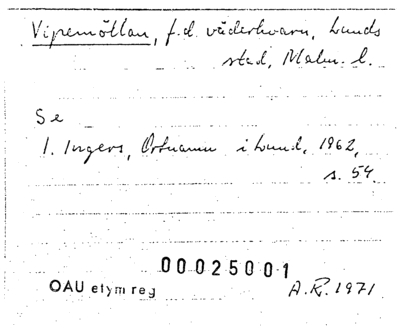 Vipemöllan, f.d. väderkvarn, Lunds
stad, Malm. l.
Se
I. Ingers, Ortnamn i Lund, 1962,
s. 54.
00025001
OAU etym reg A.R. 1971